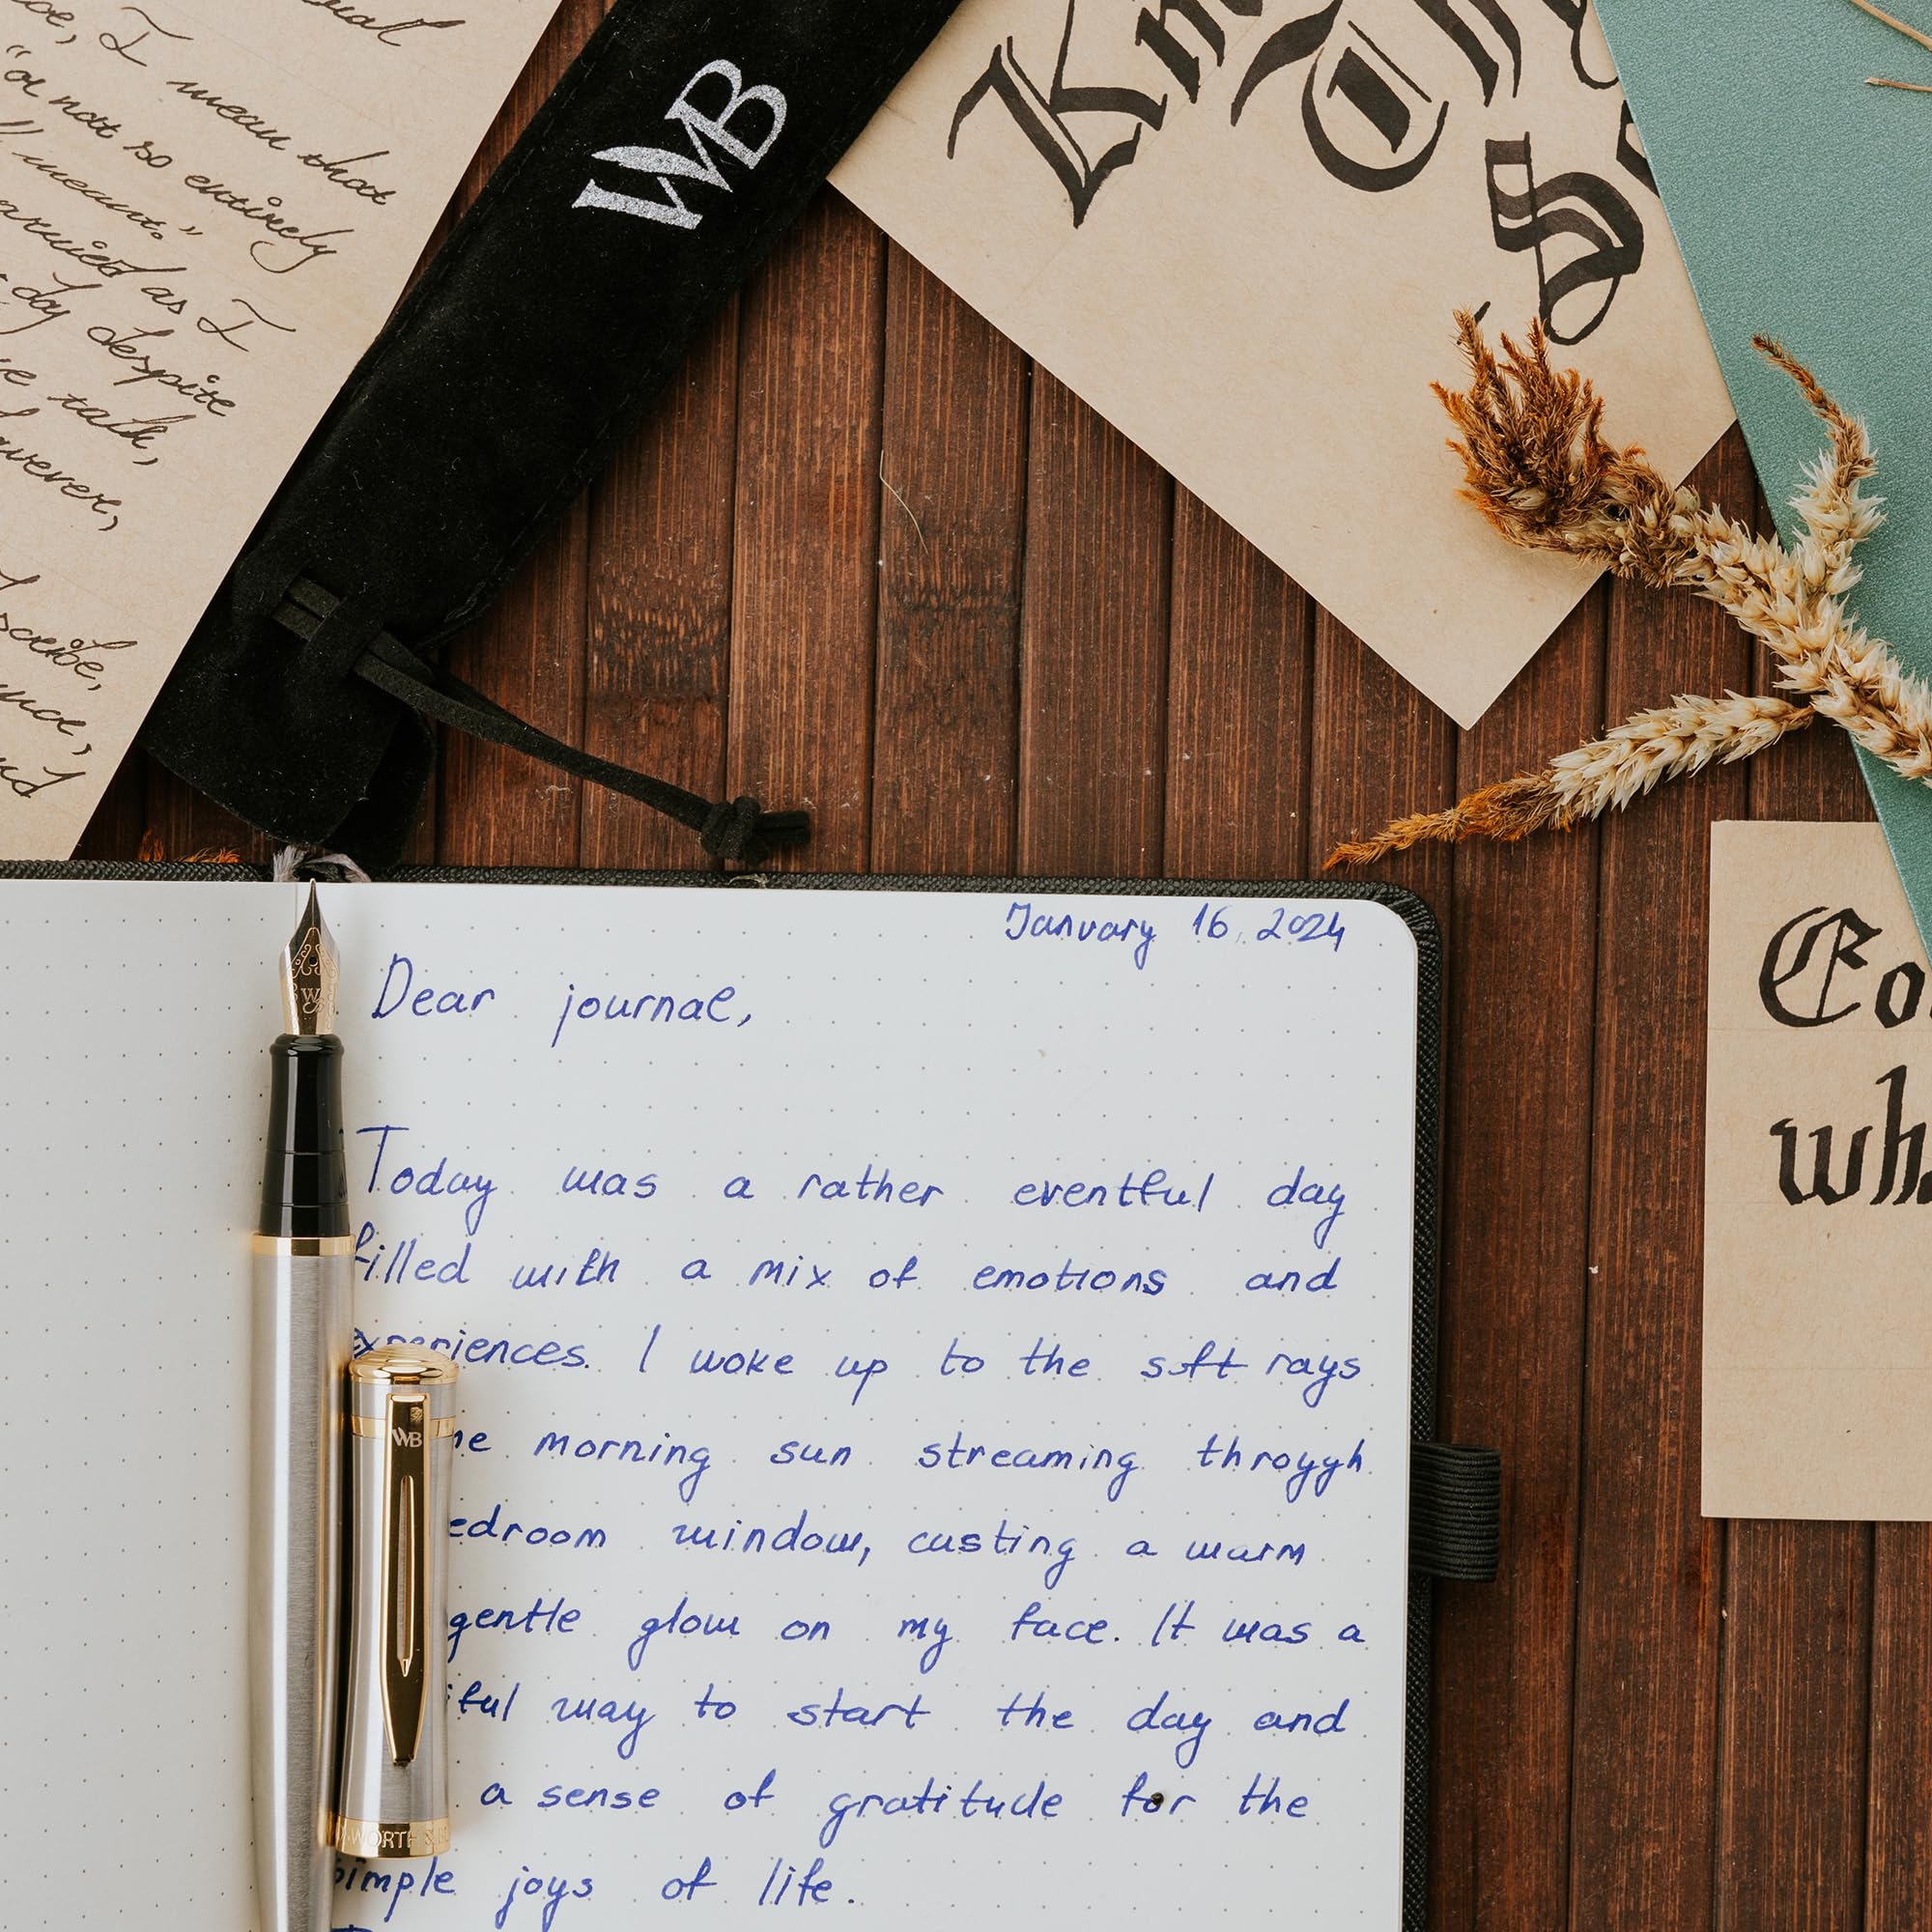 I mean that
"or not so entirely
meant."
as I
day despite
talk,
WB
The
Co
wh
January 16, 2024
Dear journal,
Today was a rather eventful day
filled with a mix of emotions and
experiences. I woke up to the soft rays
he morning sun streaming throygh
edroom window, casting a warm
gentle glow on my face. It was a
iful way to start the day and
a sense of gratitude for the
simple joys of life.
W
WB
WORTH &